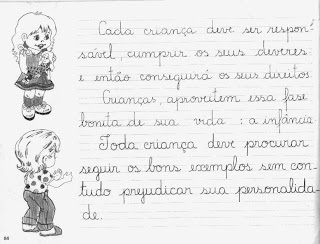 Cada criança deve ser respon-
sável, cumprir os seus deveres
e então conseguirá os seus direitos.
Crianças, aproveitem essa fase
bonita de sua vida : a infância.
Toda criança deve procurar
seguir os bons exemplos sem con-
tudo prejudicar sua personalida-
de.
84